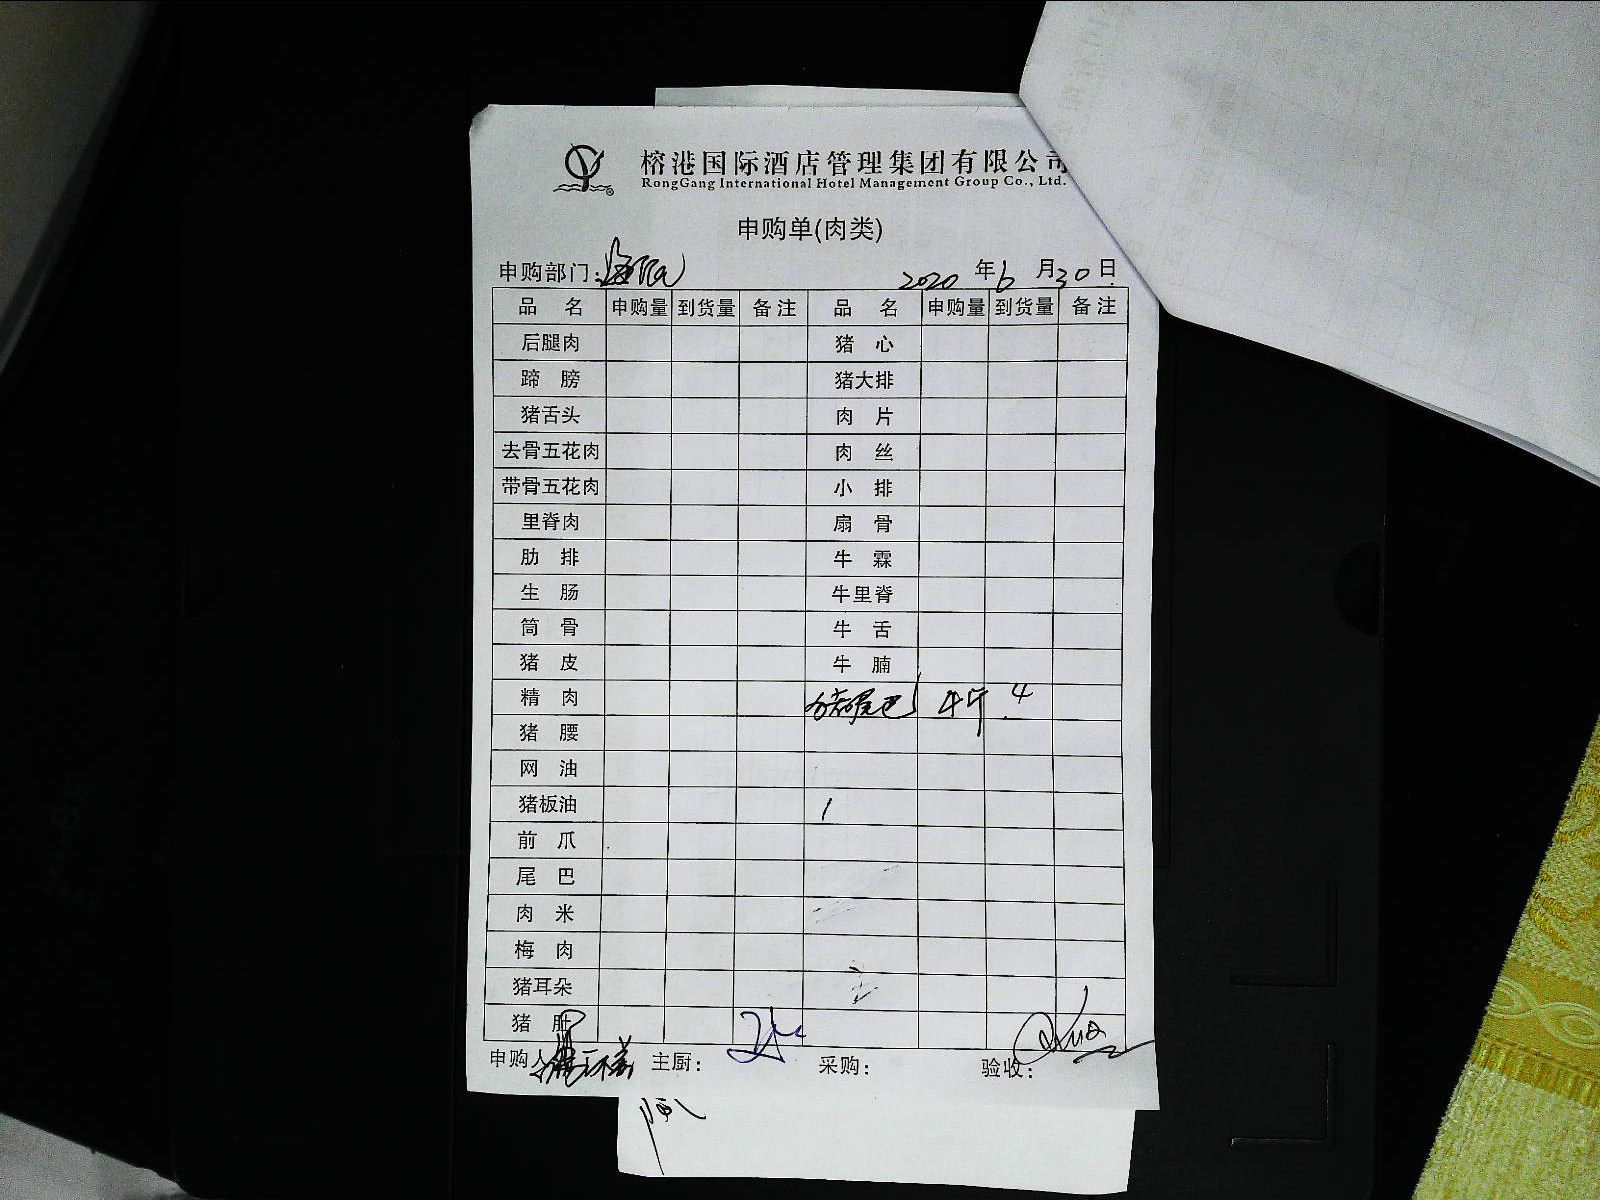 榕港国际酒店管理集团有限公司
RongGang International Hotel Management Group Co., Ltd.
申购单(肉类)
申购部门: 2020 年 6 月 30 日
品 名 申购量 到货量 备注 品 名 申购量 到货量 备注
后腿肉 猪 心
蹄 膀 猪大排
猪舌头 肉 片
去骨五花肉 肉 丝
带骨五花肉 小 排
里脊肉 扇 骨
肋 排 牛 霖
生 肠 牛里脊
筒 骨 牛 舌
猪 皮 牛 腩
精 肉 猪尾巴 4斤 4
猪 腰
网 油
猪板油
前 爪
尾 巴
肉 米
梅 肉
猪耳朵
猪 肚
申购人 主厨: 采购: 验收: